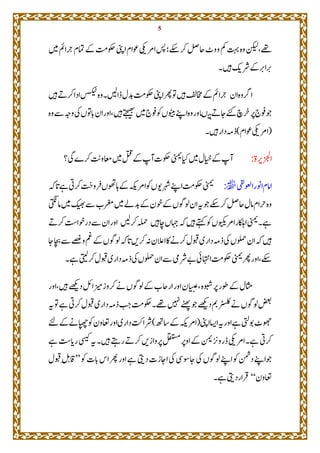 5
تھے، لیکن وہ بہت کم ووٹ حاصل کرسکے! پس امریکی عوام اپنی حکومت کے تمام جرائم میں
برابر کے شریک ہیں۔
اگر وہ ان جرائم کے مخالف ہیں تو پھر اپنی حکومت بدل ڈالیں۔ وہ ٹیکس ادا کرتے ہیں
جو فوج پر خرچ کئے جاتے ہیں اور وہ اپنے بیٹوں کو فوج میں بھیجتے ہیں، اور ان باتوں کی وجہ سے وہ
(امریکی عوام) ذمہ دار ہیں۔
الجزیرۃ: آپ کے خیال میں کیا یمنی حکومت آپ کے قتل میں معاونت کرے گی؟
امام انور العولقی: یمنی حکومت اپنے شہریوں کو امریکہ کے ہاتھوں فروخت کرتی ہے تاکہ
وہ حرام مال حاصل کرسکے جو یہ ان لوگوں کے خون کے بدلے میں مغرب سے بھیک میں مانگتی
ہے۔ یمنی اہلکار امریکیوں کو کہتے ہیں کہ جہاں چاہیں حملہ کرلیں اور ان سے درخواست کرتے
ہیں کہ ان حملوں کی ذمہ داری قبول کرنے کا اعلان نہ کریں تاکہ لوگوں کے غم و غصے سے بچا جا
سکے، اور پھر یمنی حکومت انتہائی بے شرمی سے ان حملوں کی ذمہ داری قبول کرلیتی ہے۔
مثال کے طور پر شبوہ، ابیان، اور ارحاب کے لوگوں نے کروز میزائل دیکھے ہیں، اور
بعض لوگوں نے کلسٹر بم دیکھے جو پھٹے نہیں تھے۔ حکومت جب ذمہ داری قبول کرتی ہے تو یہ
جھوٹ بولتی ہے اور یہ ایسا اپنی (امریکہ کے ساتھ) شراکت داری اور تعاون کو چھپانے کے لئے
کرتی ہے۔ امریکی ڈرونز یمن کے اوپر مستقل پروازیں کرتے رہتے ہیں۔ یہ کیسی ریاست ہے
جو اپنے دشمن کو اپنے لوگوں کی جاسوسی کی اجازت دیتی ہے اور پھر اس بات کو ”قابل قبول
تعاون“ قرار دیتی ہے۔